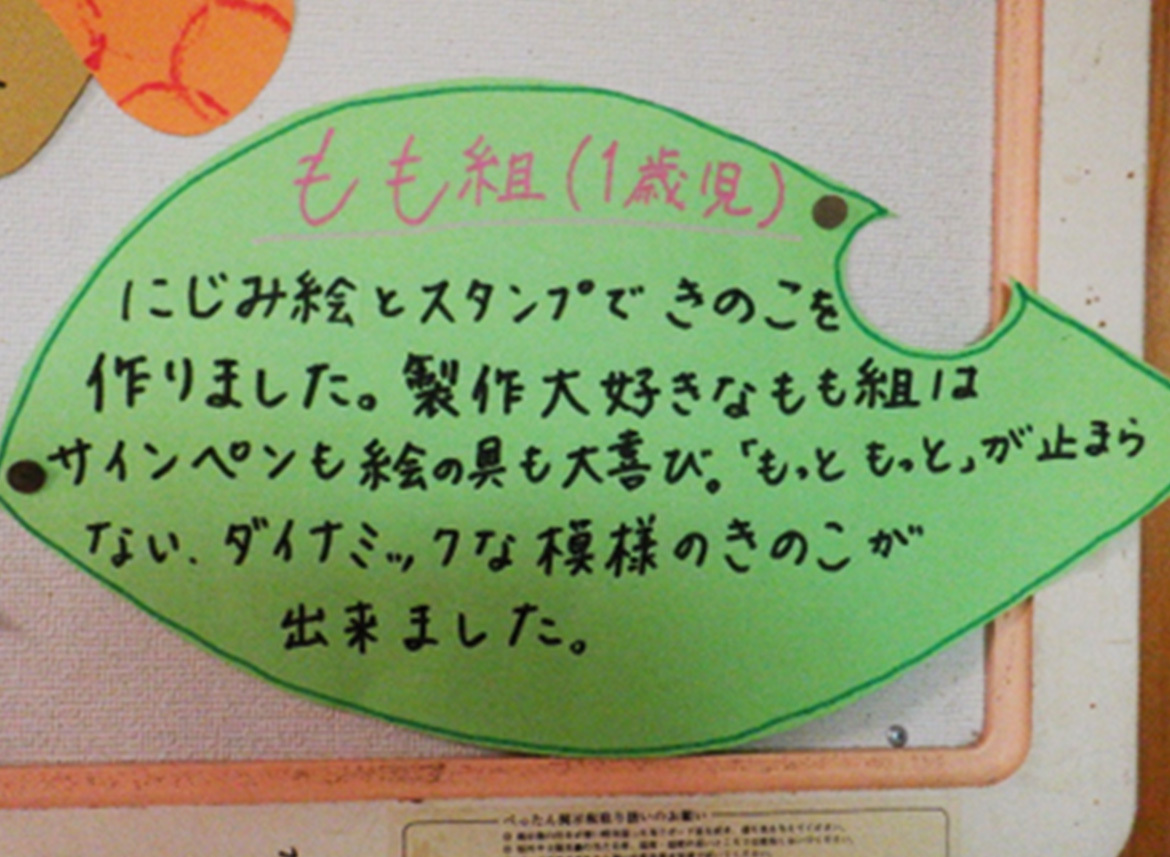 もも組(1歳児)
にじみ絵とスタンプできのこを
作りました。製作大好きなもも組は
サインペンも絵の具も大喜び。「もっともっと」が止まら
ない、ダイナミックな模様のきのこが
出来ました。
ぺったん掲示板取り扱いのお願い